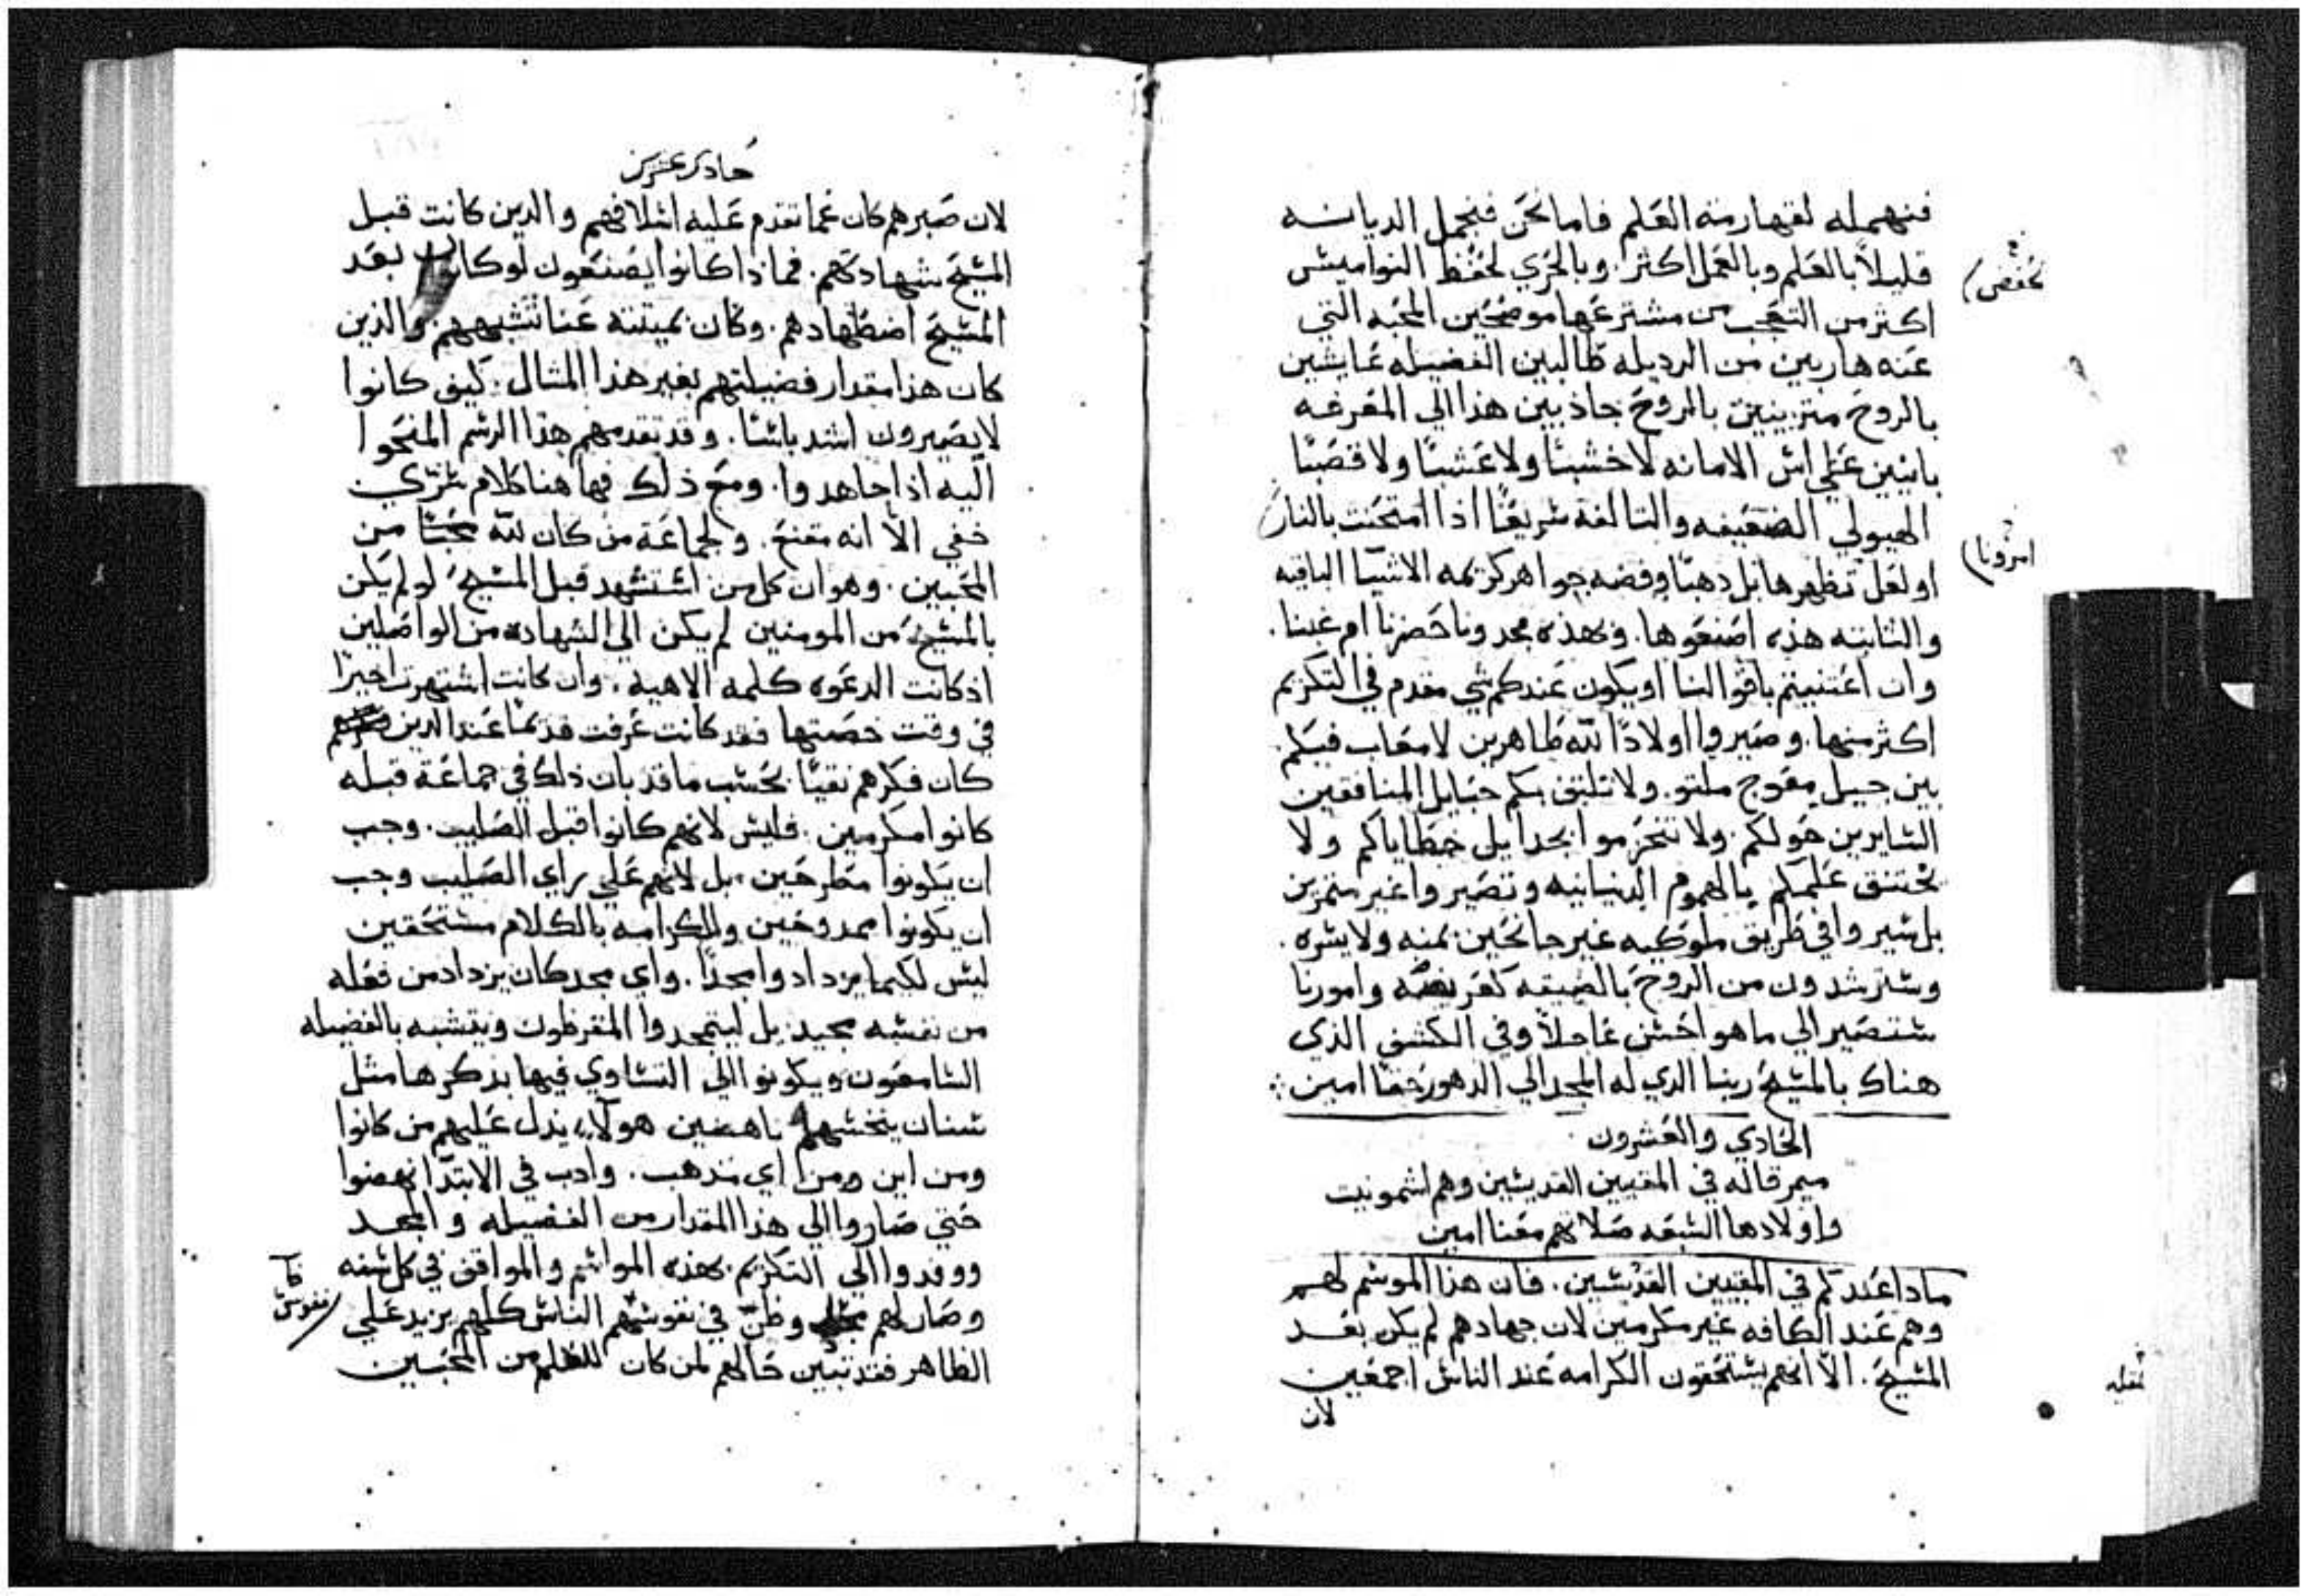 فنهمله لقهارمة العلم فاما نحن فنجمل الديانه
قليلاً بالعلم وبالعمل اكثر. وبالحري لحفظ النواميس
اكثر من التعجب من مشترعها موضحين المحبه التي
عنه هاربين من الرديله طالبين الفضيله عايشين
بالروح متزينين بالروح جاذبين هذا الي المعرفه
بانيين علي اس الامانه لا خشبًا ولا عشبًا ولا قصبًا
الهيولي الضعيفه والتالفة سريعًا اذا امتحنت بالنار
او لعل تظهرها بل دهبًا وفضه جواهر كريمه الاشيا الباقيه
والثابته هذه اصنعوها. وبهذه مجدونا حضرنا ام غبنا.
وان اعتنيتم باقوالنا او يكون عندكم شي مقدم في التكريم
اكثر منها. وصيروا اولادًا لله طاهرين لا معاب فيكم.
بين جيل معوج ملتو. ولا تلتف بكم حبايل المنافقين
السايرين حولكم. ولا تنحزموا بجدايل خطاياكم ولا
تختنق علمكم بالهموم الدنيانيه وتصيروا غير مثمرين
بل سيروا في طريق ملوكيه غير جانحين يمنه ولا يسره.
وسترشدون من الروح بالضيقه كفريضه وامورنا
ستصير الي ما هو احسن عاجلاً وفي الكشف الذي
هناك بالمسيح ربنا الدي له المجد الي الدهور حقا امين
الحادي والعشرون
ميمر قاله في المقبيين القديسين وهم اشمونيت
واولادها السبعه صلاتهم معنا امين
مادا عندكم في المقبيين القديسين. فان هذا الموسم لهم
وهم عند الكافه غير مكرمين لان جهادهم لم يكن بعد
المسيح. الاّ انهم يستحقون الكرامه عند الناس اجمعين
لان
امورنا
حادي عشرين
لان صبرهم كان عما تقدم عليه اسلافهم والدين كانت قبل
المسيح شهادتهم. فماذا كانوا يصنعون لو كان بعد
المسيح اضطهادهم. وكان بميتته عنا تشبههم. والذين
كان هذا مقدار فضيلتهم بغير هذا المثال. كيف كانوا
لا يصيرون اشد باسًا. وقد تقدمهم هذا الرسم المنحوا
اليه اذا جاهدوا. ومع ذلك فها هنا كلام سري
خفي الاّ انه مقنع. ولجماعة من كان لله محبًا من
المحبين. وهو ان كل من استشهد قبل المسيح لو لم يكن
بالمسيح من المومنين لم يكن الي الشهاده من الواصلين
اذ كانت الدعوه كلمه الاهيه. وان كانت اشتهرت اخيرًا
في وقت خصتها فقد كانت عرفت قديمًا عند الدين
كان فكرهم نقيًا بحسب ما قد بان ذلك في جماعة قبله
كانوا مكرمين. فليس لانهم كانوا قبل الصليب. وجب
ان يكونوا مطرحين. بل لانهم علي راي الصليب وجب
ان يكونوا ممدوحين وللكرامه بالكلام مستحقين
ليس لكيما يزدادوا مجدًا. واي مجد كان يزداد من فعله
من نفسه مجيد بل ليتمجدوا المقرظون ويتشبه بالفضيله
السامعون ويكونوا الي التساوي فيها بذكرها مثل
سنان ينخسهم ناهضين هولآء يدل عليهم من كانوا
ومن اين ومن اي مذهب. وادب في الابتدا نهضوا
حتي صاروا الي هذا المقدار من الفضيله والمجد
ووفدوا الي التكريم بهذه المواسم والمواقف في كل سنه
وصار لهم وظنّ في نفوسهم الناس كلهم يزيد علي
الظاهر فقد تبين حالهم لمن كان للعلم من المحبين
نفوس